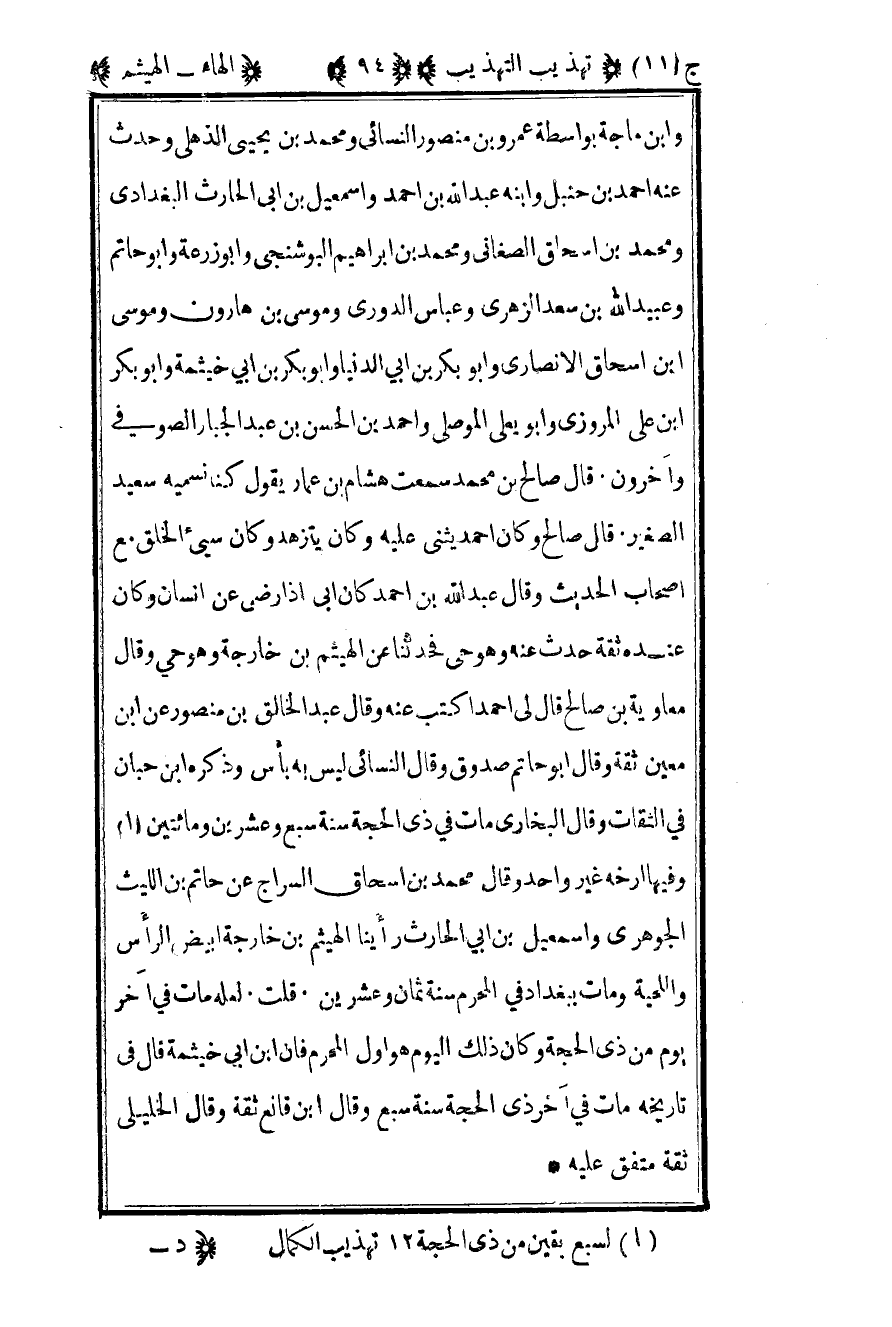 ج (١١) تهذيب التهذيب ٩٤ الهاء ـ الهيثم
وابن ماجة بواسطة عمرو بن منصور النسائى ومحمد بن يحيى الذهلى وحدث
عنه احمد بن حنبل وابنه عبدالله بن احمد واسمعيل بن ابى الحارث البغدادى
ومحمد بن اسحاق الصغانى ومحمد بن ابراهيم البوشنجى وابوزرعة وابوحاتم
وعبيدالله بن سعد الزهرى وعباس الدورى وموسى بن هارون وموسى
ابن اسحاق الانصارى وابو بكر بن ابي الدنيا وابو بكر بن ابي خيثمة وابو بكر
ابن على المروزى وابو يعلى الموصلى واحمد بن الحسن بن عبد الجبار الصوفي
وآخرون . قال صالح بن محمد سمعت هشام بن عمار يقول كنا نسميه سعيد
الصغير . قال صالح وكان احمد يثنى عليه وكان يتزهد وكان سيئ الخلق مع
اصحاب الحديث وقال عبدالله بن احمد كان ابى اذا رضى عن انسان وكان
عنده ثقة حدث عنه وهو حى فحدثنا عن الهيثم بن خارجة وهو حي وقال
معاوية بن صالح قال لى احمد اكتب عنه وقال عبد الخالق بن منصور عن ابن
معين ثقة وقال ابو حاتم صدوق وقال النسائى ليس به بأس وذكره ابن حبان
في الثقات وقال البخارى مات في ذى الحجة سنة سبع وعشرين ومائتين (١)
وفيها ارخه غير واحد وقال محمد بن اسحاق السراج عن حاتم بن الليث
الجوهرى واسمعيل بن ابي الحارث رأينا الهيثم بن خارجة ابيض الرأس
واللحية ومات ببغداد في المحرم سنة ثمان وعشرين . قلت . لعله مات في آخر
يوم من ذى الحجة وكان ذلك اليوم هو اول المحرم فان ابن ابي خيثمة قال فى
تاريخه مات في آخر ذى الحجة سنة سبع وقال ابن قانع ثقة وقال الخليلى
ثقة متفق عليه *
(١) لسبع بقين من ذى الحجة ١٢ تهذيب الكمال د ـ